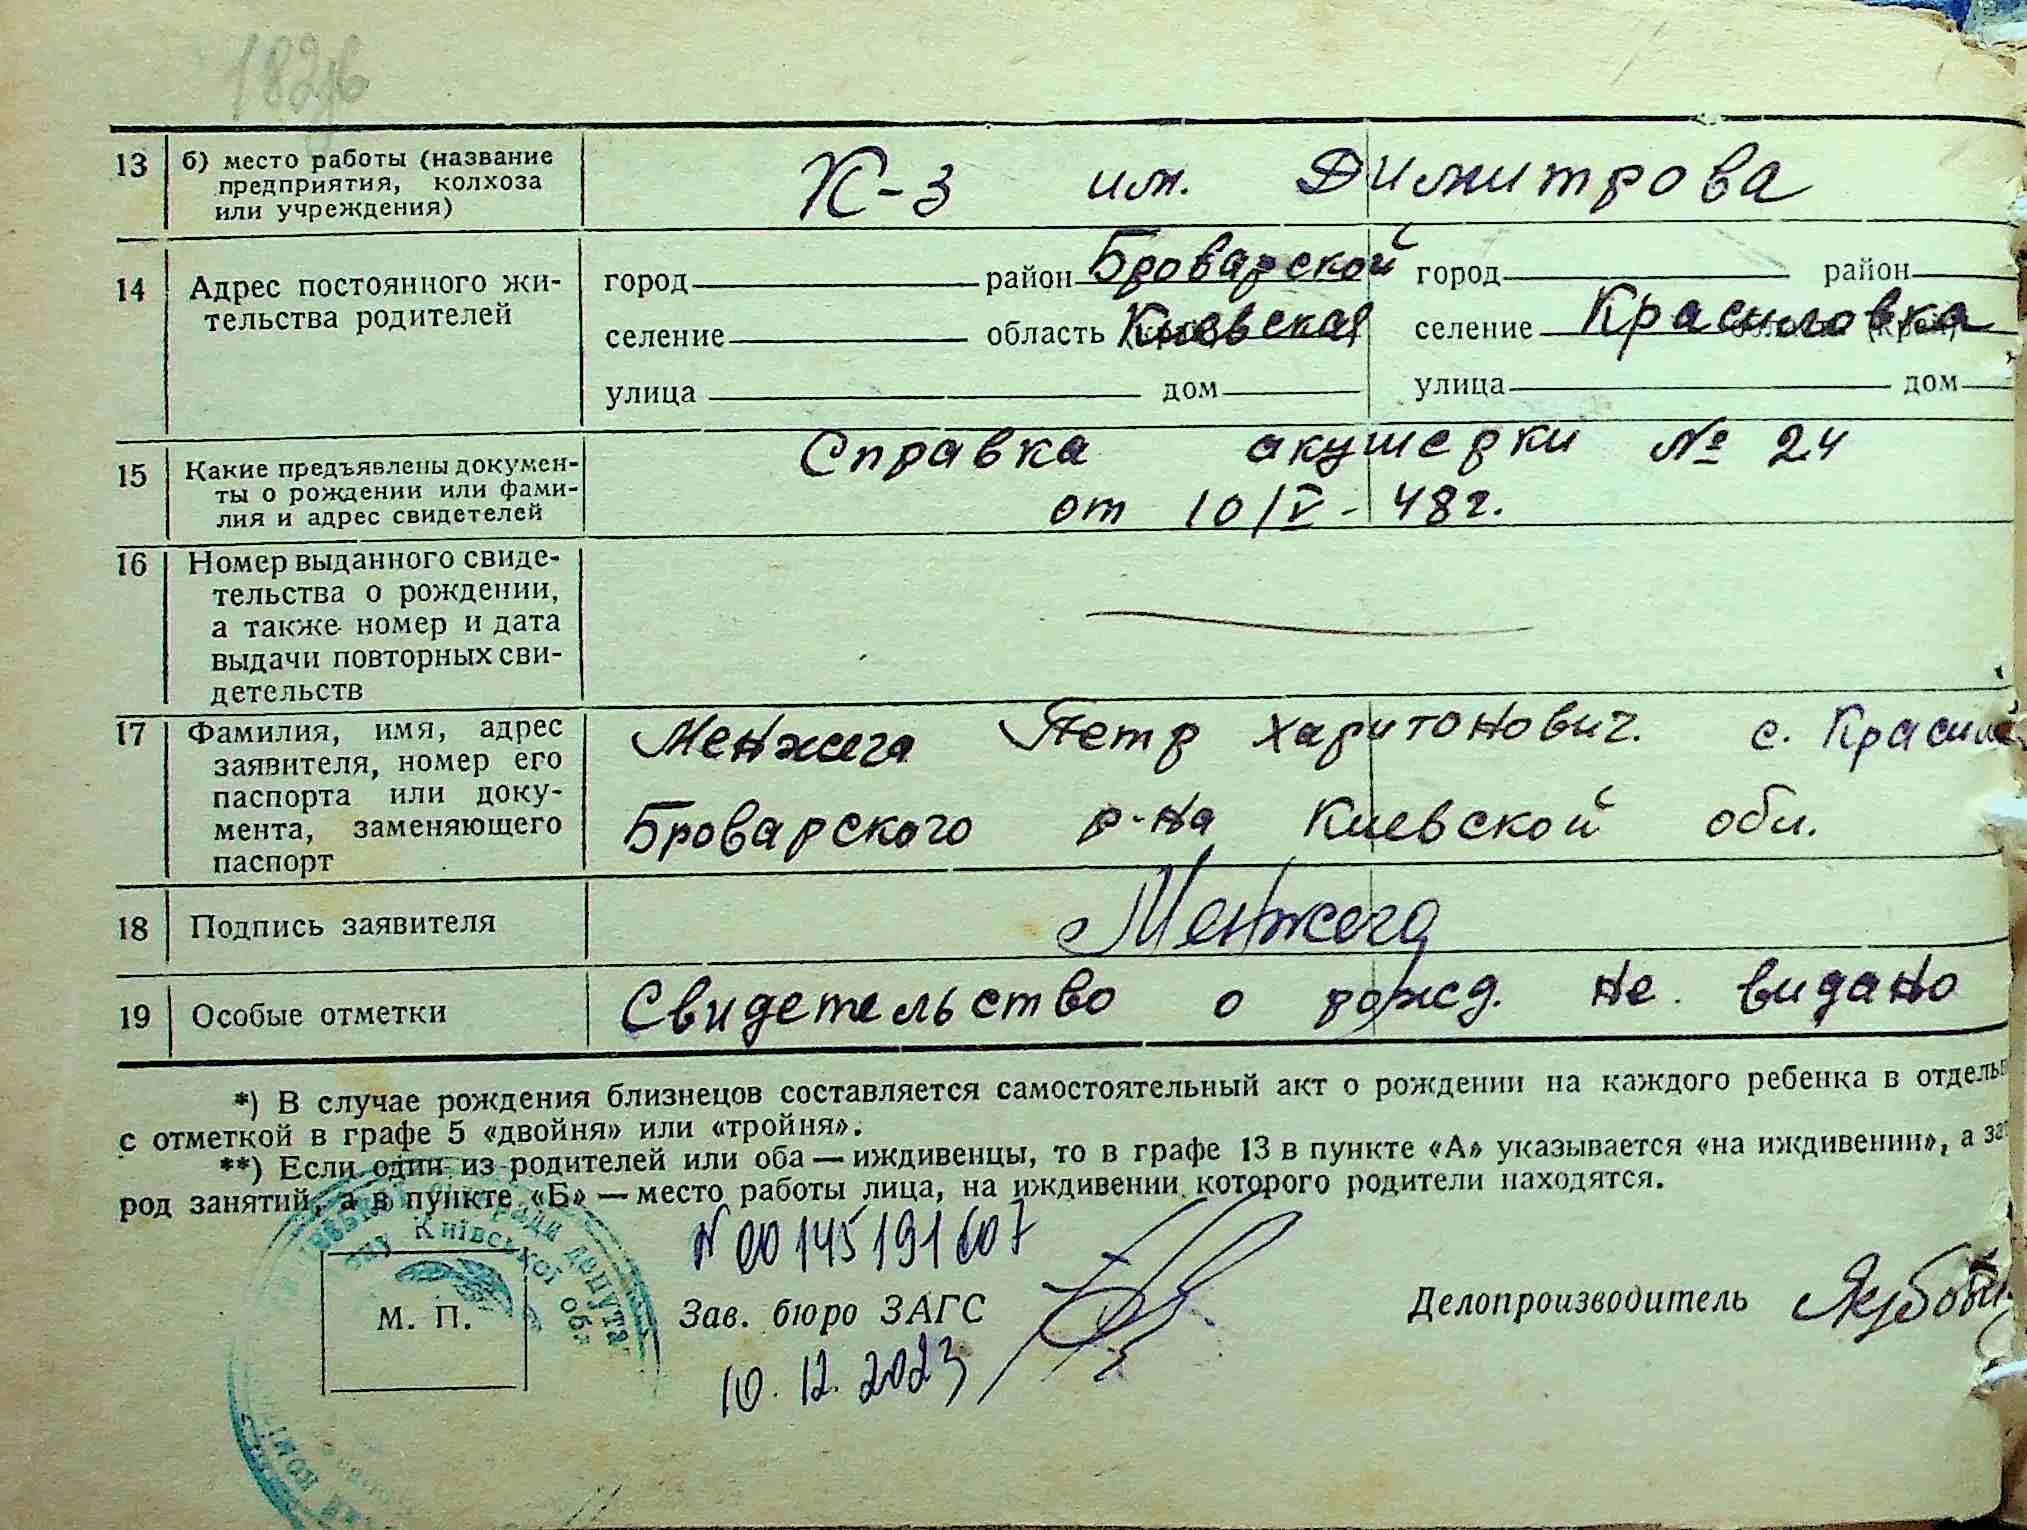 182зв
13 б) место работы (название предприятия, колхоза или учреждения) К-з им. Димитрова
14 Адрес постоянного жи-
тельства родителей
город район Броварской город район
селение область Киевская селение Красиловка
улица дом улица дом
15 Какие предъявлены докумен-
ты о рождении или фами-
лия и адрес свидетелей
Справка акушерки № 24
от 10/V - 48 г.
16 Номер выданного свиде-
тельства о рождении,
а также номер и дата
выдачи повторных сви-
детельств
17 Фамилия, имя, адрес
заявителя, номер его
паспорта или доку-
мента, заменяющего
паспорт
Менжега Петр Харитонович. с. Красил
Броварского р-на Киевской обл.
18 Подпись заявителя Менжега
19 Особые отметки Свидетельство о рожд. не видано
*) В случае рождения близнецов составляется самостоятельный акт о рождении на каждого ребенка в отдель
с отметкой в графе 5 «двойня» или «тройня».
**) Если один из родителей или оба — иждивенцы, то в графе 13 в пункте «А» указывается «на иждивении», а зат
род занятий, а в пункте «Б» — место работы лица, на иждивении которого родители находятся.
депута
Київської обл
N 00145191607
М. П.
Зав. бюро ЗАГС
Делопроизводитель
10.12.2023